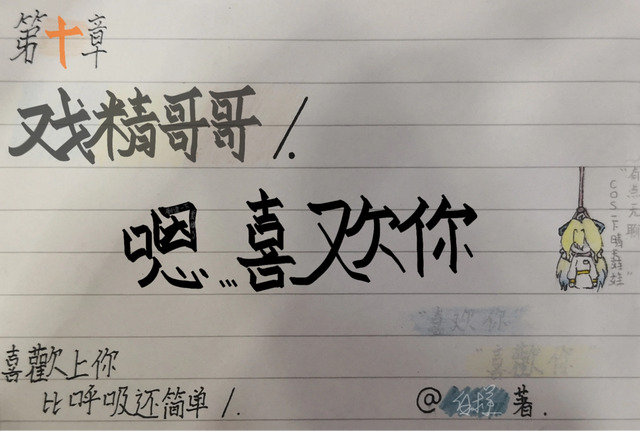 第十章
戏精哥哥/.
嗯…喜欢你
"有点无聊
cos一下晴天娃娃
"喜欢你"
"喜歡你"
喜歡上你
比呼吸还简单/.
@白择 著.